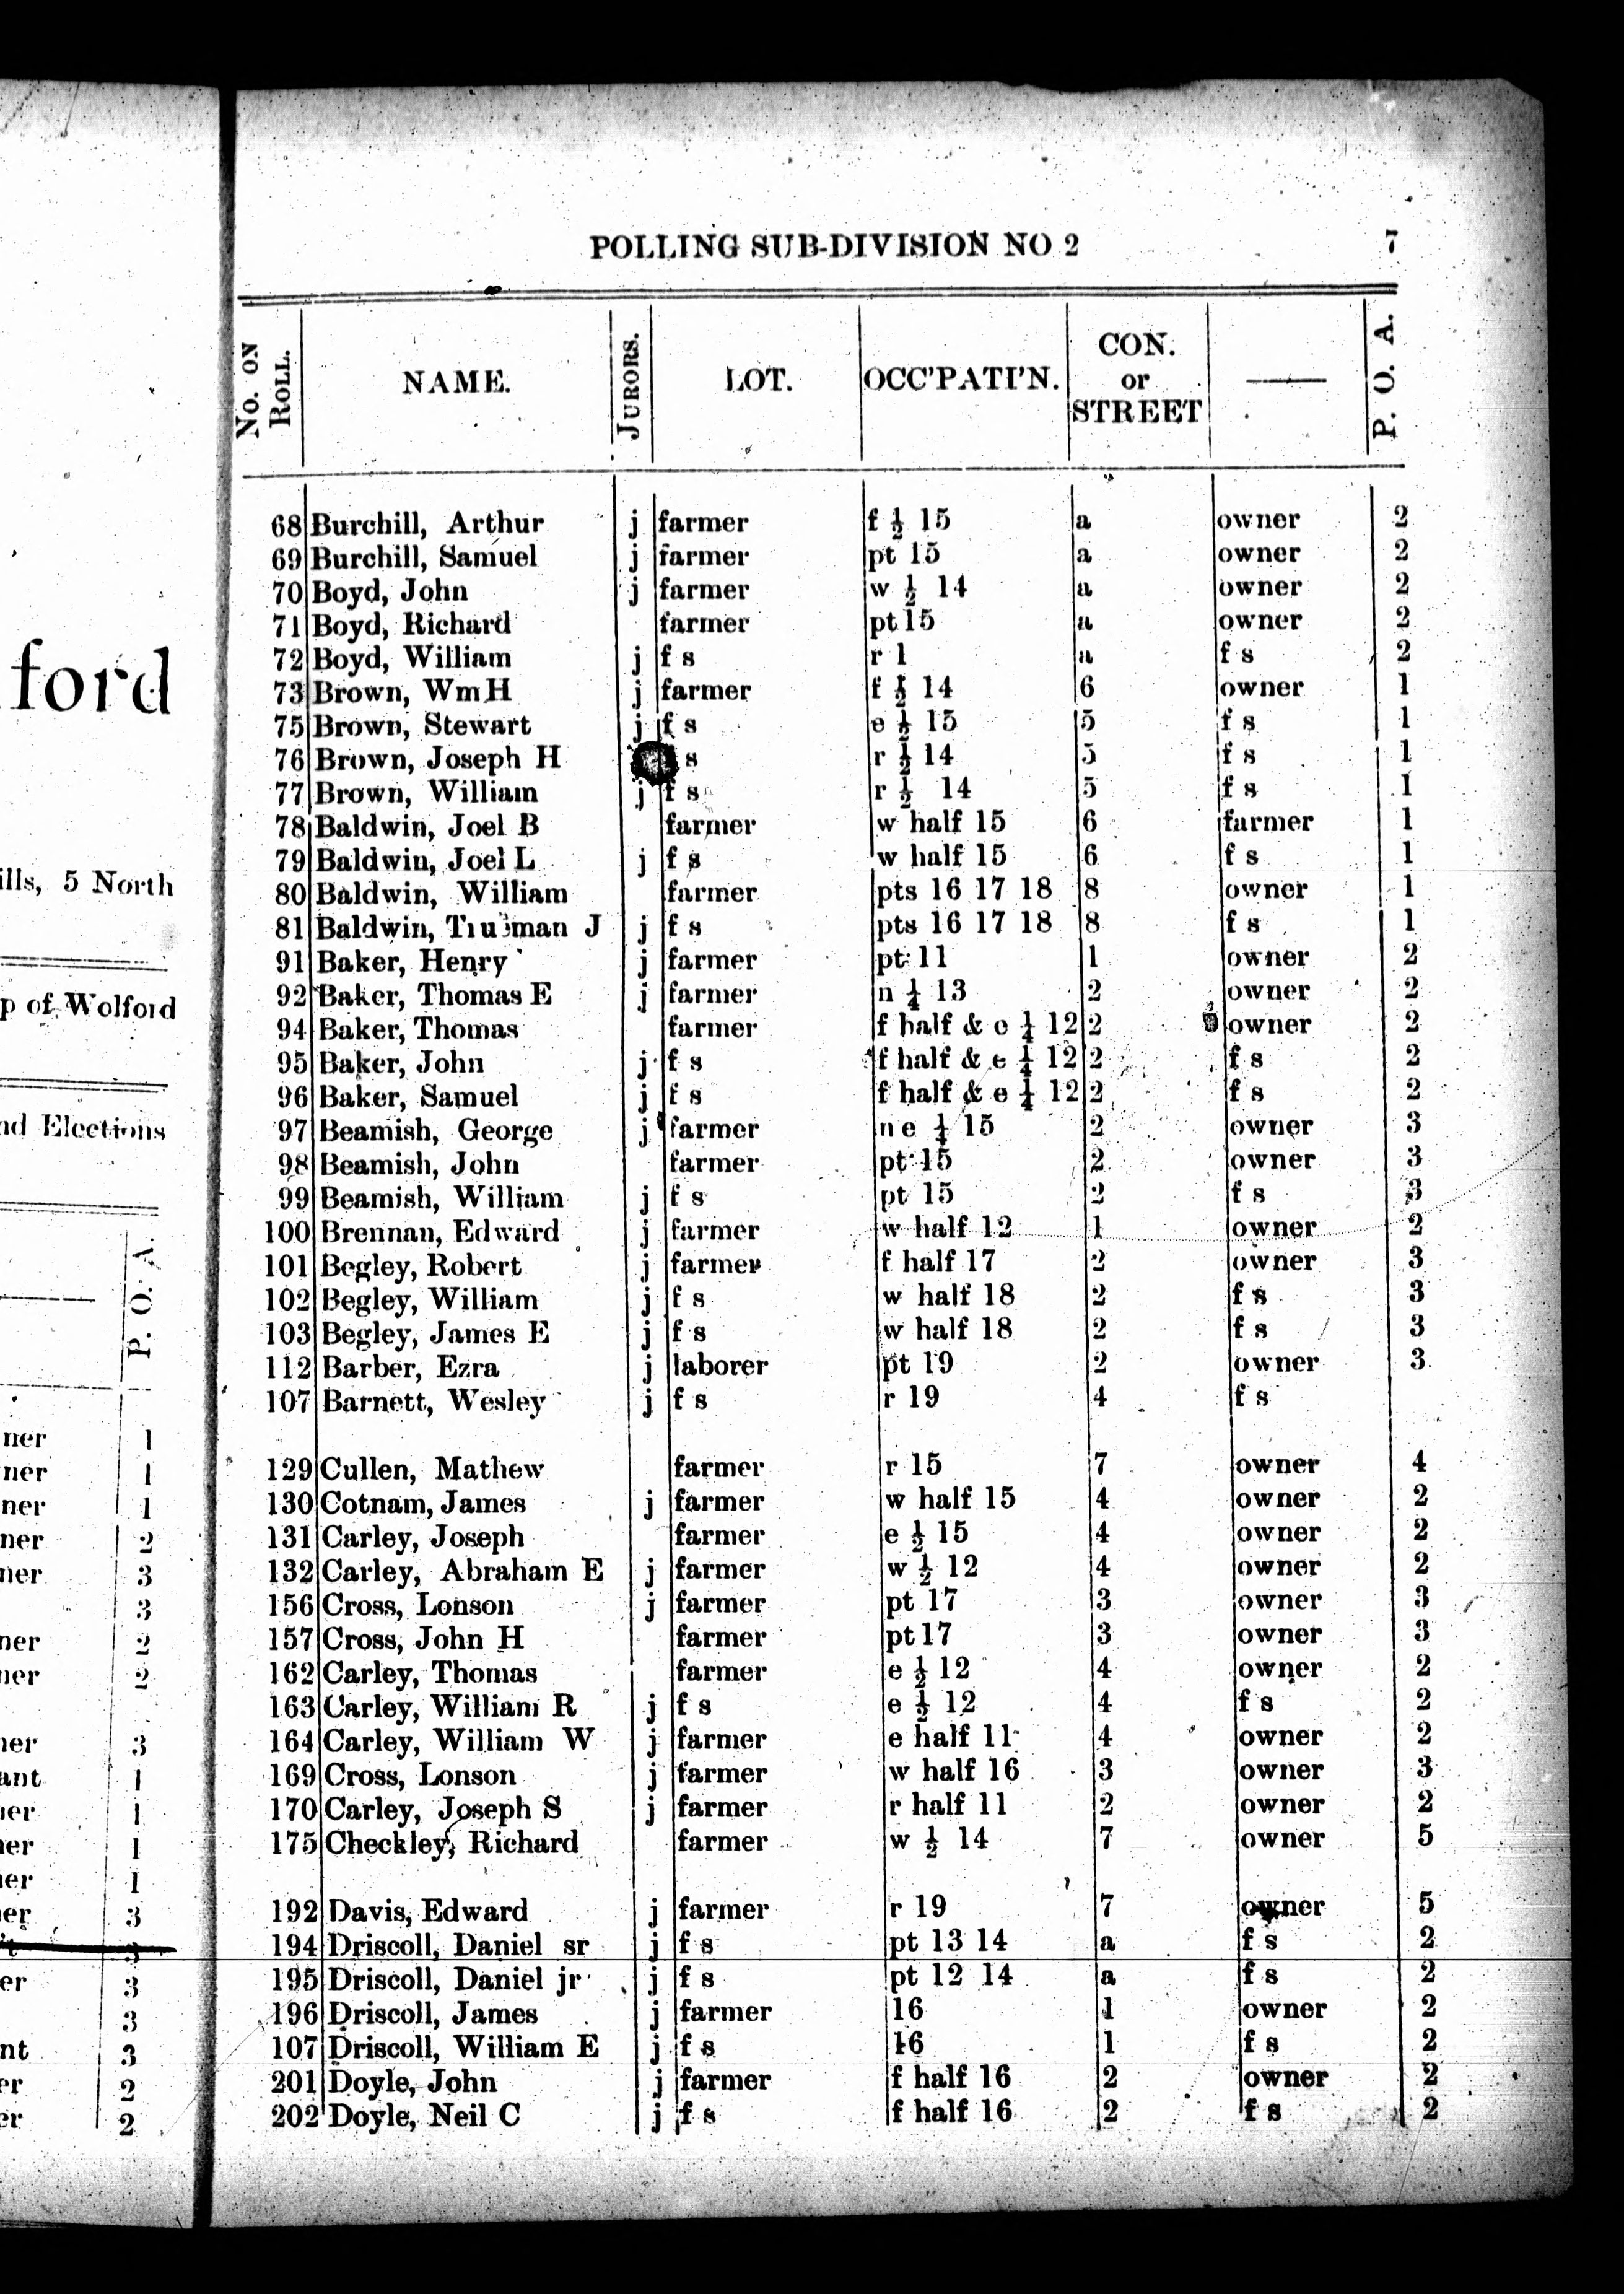 ford
ills, 5 North
p of Wolford
nd Elections
P. O. A.
ner 1
ner 1
ner 1
ner 2
ner 3
3
ner 2
ner 2
ner 3
ant 1
ner 1
ner 1
ner 1
er 3
3
er 3
3
nt 3
er 2
er 2
POLLING SUB-DIVISION NO 2 7
No. ON ROLL. NAME. JURORS. LOT. OCC'PATI'N. CON. or STREET — P. O. A.
68 Burchill, Arthur j farmer f ½ 15 a owner 2
69 Burchill, Samuel j farmer pt 15 a owner 2
70 Boyd, John j farmer w ½ 14 a owner 2
71 Boyd, Richard farmer pt 15 a owner 2
72 Boyd, William j f s r 1 a f s 2
73 Brown, Wm H j farmer f ½ 14 6 owner 1
75 Brown, Stewart j f s e ½ 15 5 f s 1
76 Brown, Joseph H s r ½ 14 5 f s 1
77 Brown, William j f s r ½ 14 5 f s 1
78 Baldwin, Joel B farmer w half 15 6 farmer 1
79 Baldwin, Joel L j f s w half 15 6 f s 1
80 Baldwin, William farmer pts 16 17 18 8 owner 1
81 Baldwin, J j f s pts 16 17 18 8 f s 1
91 Baker, Henry j farmer pt 11 1 owner 2
92 Baker, Thomas E j farmer n ¼ 13 2 owner 2
94 Baker, Thomas farmer f half & e ¼ 12 2 owner 2
95 Baker, John j f s f half & e ¼ 12 2 f s 2
96 Baker, Samuel j f s f half & e ¼ 12 2 f s 2
97 Beamish, George j farmer n e ¼ 15 2 owner 3
98 Beamish, John farmer pt 15 2 owner 3
99 Beamish, William j f s pt 15 2 f s 3
100 Brennan, Edward j farmer w half 12 1 owner 2
101 Begley, Robert j farmer f half 17 2 owner 3
102 Begley, William j f s w half 18 2 f s 3
103 Begley, James E j f s w half 18 2 f s 3
112 Barber, Ezra j laborer pt 19 2 owner 3
107 Barnett, Wesley j f s r 19 4 f s
129 Cullen, Mathew farmer r 15 7 owner 4
130 Cotnam, James j farmer w half 15 4 owner 2
131 Carley, Joseph farmer e ½ 15 4 owner 2
132 Carley, Abraham E j farmer w ½ 12 4 owner 2
156 Cross, Lonson j farmer pt 17 3 owner 3
157 Cross, John H farmer pt 17 3 owner 3
162 Carley, Thomas farmer e ½ 12 4 owner 2
163 Carley, William R j f s e ½ 12 4 f s 2
164 Carley, William W j farmer e half 11 4 owner 2
169 Cross, Lonson j farmer w half 16 3 owner 3
170 Carley, Joseph S j farmer r half 11 2 owner 2
175 Checkley, Richard farmer w ½ 14 7 owner 5
192 Davis, Edward j farmer r 19 7 owner 5
194 Driscoll, Daniel sr j f s pt 13 14 a f s 2
195 Driscoll, Daniel jr j f s pt 12 14 a f s 2
196 Driscoll, James j farmer 16 1 owner 2
107 Driscoll, William E j f s 16 1 f s 2
201 Doyle, John j farmer f half 16 2 owner 2
202 Doyle, Neil C j f s f half 16 2 f s 2